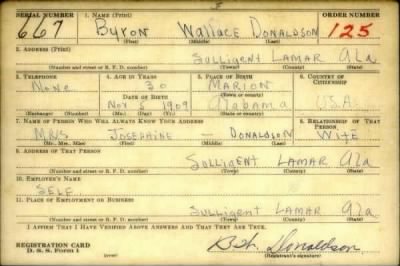 SERIAL NUMBER 1. NAME (Print) ORDER NUMBER
667 Byron Wallace Donaldson 125
(First) (Middle) (Last)
2. ADDRESS (Print)
Sulligent Lamar Ala
(Number and street or R. F. D. number) (Town) (County) (State)
3. TELEPHONE 4. AGE IN YEARS 5. PLACE OF BIRTH 6. COUNTRY OF CITIZENSHIP
None 30 Marion
DATE OF BIRTH (Town or county)
Nov 5 1909 Alabama U.S.A.
(Exchange) (Number) (Mo.) (Day) (Yr.) (State or country)
7. NAME OF PERSON WHO WILL ALWAYS KNOW YOUR ADDRESS 8. RELATIONSHIP OF THAT PERSON
Mrs Josephine — Donaldson Wife
(Mr., Mrs., Miss) (First) (Middle) (Last)
9. ADDRESS OF THAT PERSON
Sulligent Lamar Ala
(Number and street or R. F. D. number) (Town) (County) (State)
10. EMPLOYER'S NAME
Self
11. PLACE OF EMPLOYMENT OR BUSINESS
Sulligent Lamar Ala
(Number and street or R. F. D. number) (Town) (County) (State)
I AFFIRM THAT I HAVE VERIFIED ABOVE ANSWERS AND THAT THEY ARE TRUE.
REGISTRATION CARD
D. S. S. Form 1 B.W. Donaldson
(Registrant's signature)